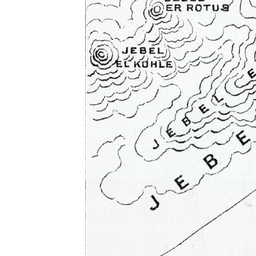 JEBEL
ER ROTUS
JEBEL
EL KOHLE
JEBEL
JEBE